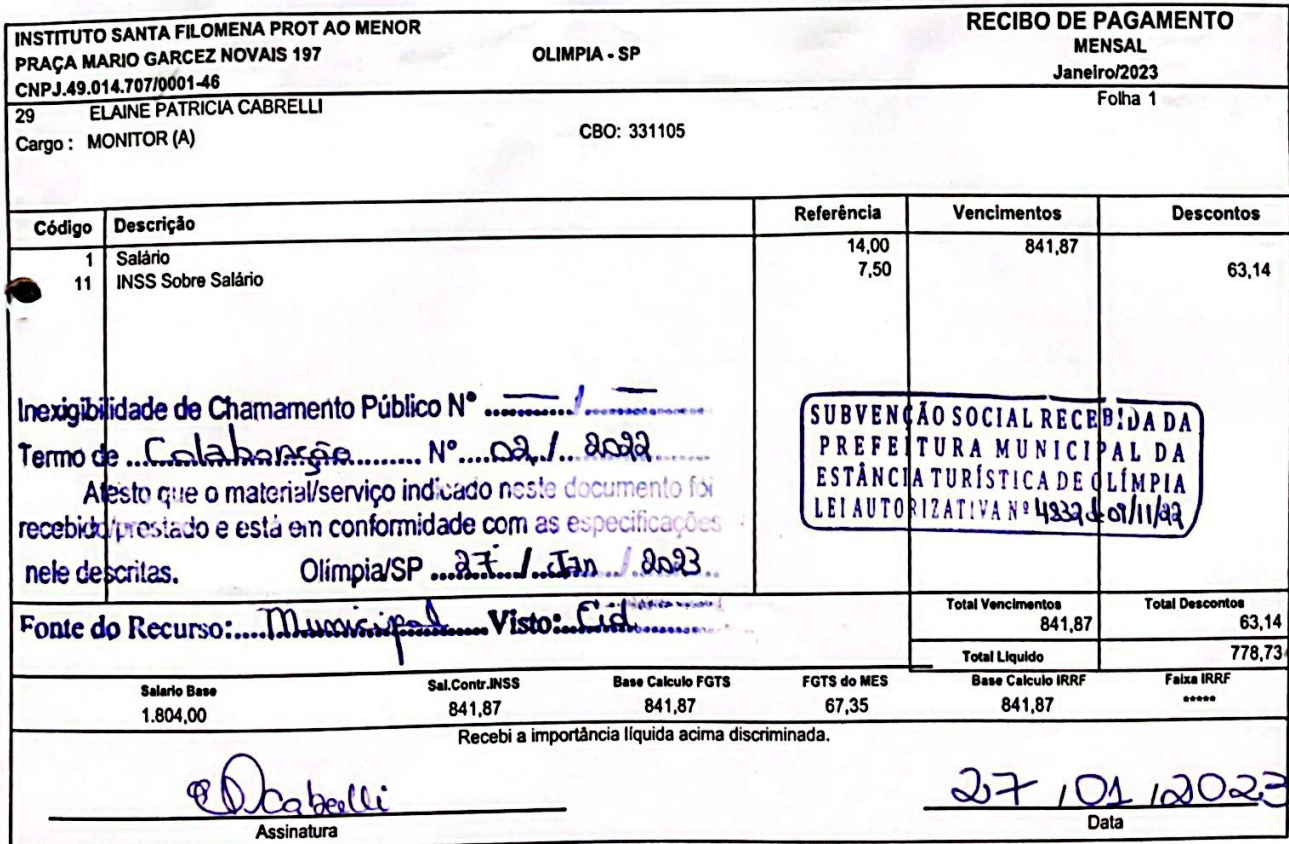 INSTITUTO SANTA FILOMENA PROT AO MENOR
PRAÇA MARIO GARCEZ NOVAIS 197 OLIMPIA - SP
CNPJ.49.014.707/0001-46
RECIBO DE PAGAMENTO
MENSAL
Janeiro/2023
29 ELAINE PATRICIA CABRELLI Folha 1
Cargo : MONITOR (A) CBO: 331105
Código Descrição Referência Vencimentos Descontos
1 Salário 14,00 841,87
11 INSS Sobre Salário 7,50 63,14
Inexigibilidade de Chamamento Público Nº ...... / ......
Termo de Colaboração Nº 02 / 2022
Atesto que o material/serviço indicado neste documento foi
recebido/prestado e está em conformidade com as especificações
nele descritas. Olímpia/SP 27 / Jan / 2023
SUBVENÇÃO SOCIAL RECEBIDA DA
PREFEITURA MUNICIPAL DA
ESTÂNCIA TURÍSTICA DE OLÍMPIA
LEI AUTORIZATIVA Nº
Fonte do Recurso: Municipal Visto: Cid
Total Vencimentos Total Descontos
841,87 63,14
Total Liquido 778,73
Salario Base Sal.Contr.INSS Base Calculo FGTS FGTS do MES Base Calculo IRRF Faixa IRRF
1.804,00 841,87 841,87 67,35 841,87 *****
Recebi a importância líquida acima discriminada.
27 / 01 / 2023
Assinatura Data